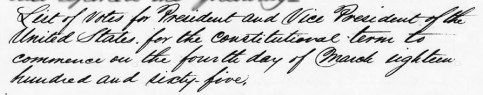 List of votes for President and Vice President of the
United States, for the constitutional term to
commence on the fourth day of March eighteen
hundred and sixty-five.